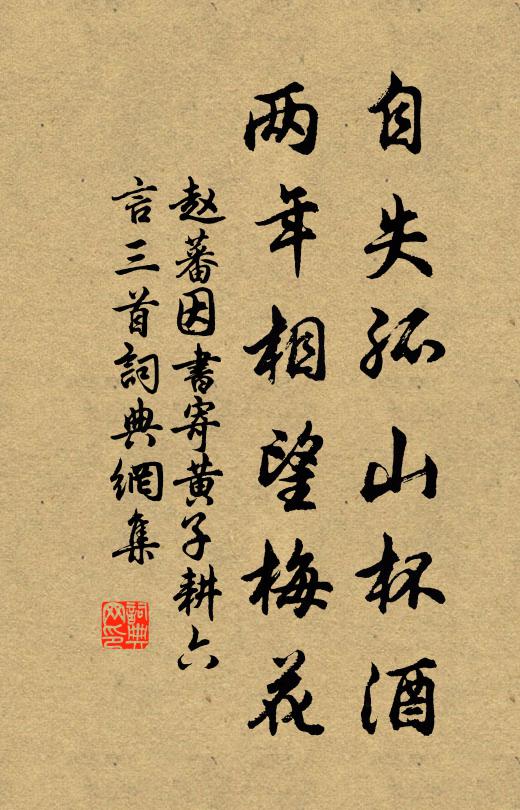 自失孤山杯酒
两年相望梅花
赵蕃因書寄黄子耕六
言三首詞典網集
詞典网印